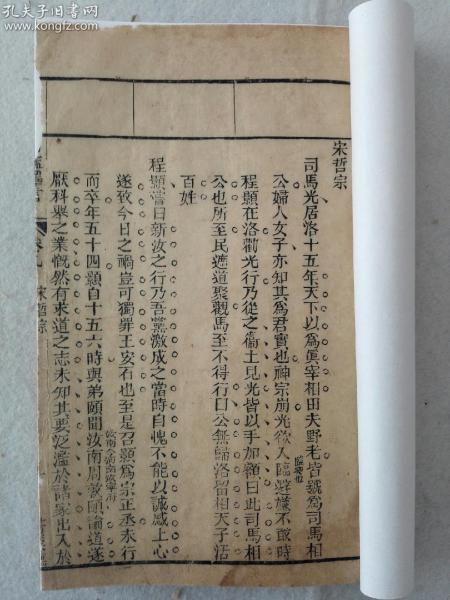 孔夫子旧书网
www.kongfz.com
宋哲宗
司馬光居洛十五年天下以爲眞宰相田夫野老皆號爲司馬相
公婦人女子亦知其爲君實也神宗崩光欲入臨避嫌不敢時
程顥在洛勸光行乃從之衞士見光皆以手加額曰此司馬相
公也所至民遮道聚觀馬至不得行曰公無歸洛留相天子活
百姓
程顥嘗曰新汝之行乃吾黨激成之當時自愧不能以誠感上心
遂致今日之禍豈可獨罪王安石也至是召顥爲宗正丞未行
而卒年五十四顥自十五六時與弟頤聞汝南周敦頤論道遂
厭科舉之業慨然有求道之志未知其要泛濫於諸家出入於
宋哲宗